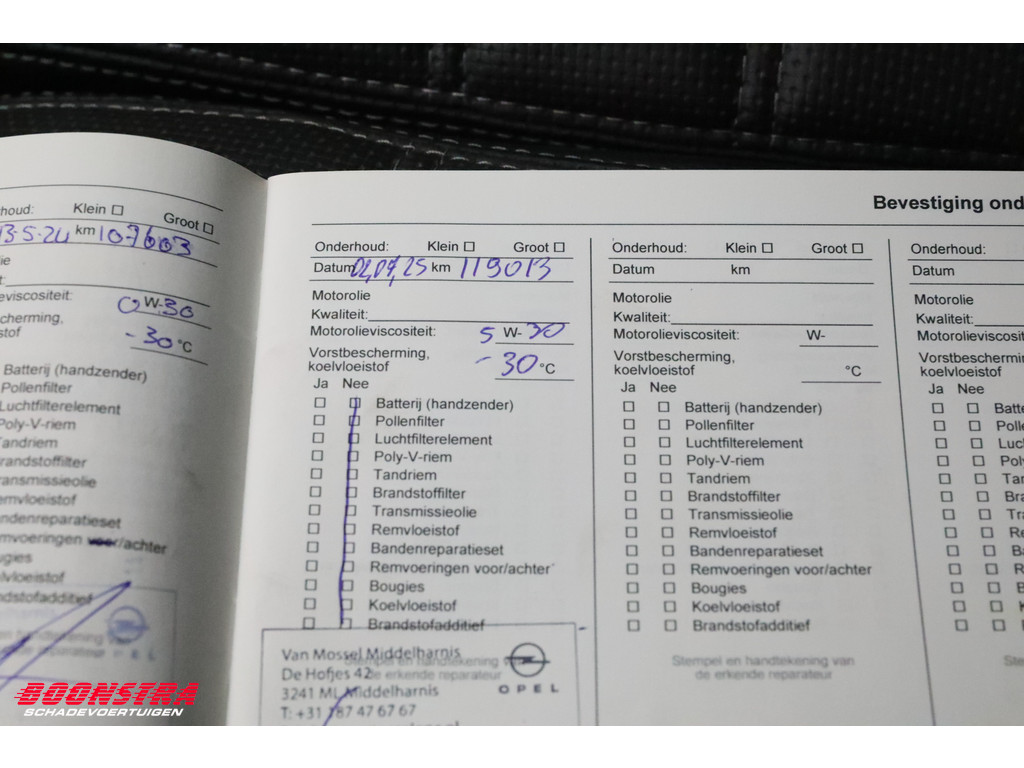 Bevestiging ond
rhoud: Klein Groot
13-5-24 km 107603
ie
t:
eviscositeit: 0 W-30
cherming,
stof -30 °C
Batterij (handzender)
Pollenfilter
Luchtfilterelement
Poly-V-riem
Tandriem
randstoffilter
ransmissieolie
emvloeistof
ndenreparatieset
mvoeringen voor/achter
ugies
elvloeistof
ndstofadditief
en handtekening van
de reparateur OPEL
Onderhoud: Klein Groot
Datum 02,07,25 km 119013
Motorolie
Kwaliteit:
Motorolieviscositeit: 5 W-30
Vorstbescherming,
koelvloeistof -30 °C
Ja Nee
Batterij (handzender)
Pollenfilter
Luchtfilterelement
Poly-V-riem
Tandriem
Brandstoffilter
Transmissieolie
Remvloeistof
Bandenreparatieset
Remvoeringen voor/achter
Bougies
Koelvloeistof
Brandstofadditief
Stempel en handtekening van
de erkende reparateur
Van Mossel Middelharnis
De Hofjes 42
3241 ML Middelharnis
T: +31 187 47 67 67
OPEL
Onderhoud: Klein Groot
Datum km
Motorolie
Kwaliteit:
Motorolieviscositeit: W-
Vorstbescherming,
koelvloeistof °C
Ja Nee
Batterij (handzender)
Pollenfilter
Luchtfilterelement
Poly-V-riem
Tandriem
Brandstoffilter
Transmissieolie
Remvloeistof
Bandenreparatieset
Remvoeringen voor/achter
Bougies
Koelvloeistof
Brandstofadditief
Stempel en handtekening van
de erkende reparateur
Onderhoud:
Datum
Motorolie
Kwaliteit:
Motorolieviscositeit
Vorstbeschermin
koelvloeistof
Ja Nee
Batte
Polle
Luc
Poly
Tan
Bra
Tra
Re
Ba
Re
B
K
B
Ste
BOONSTRA
SCHADEVOERTUIGEN